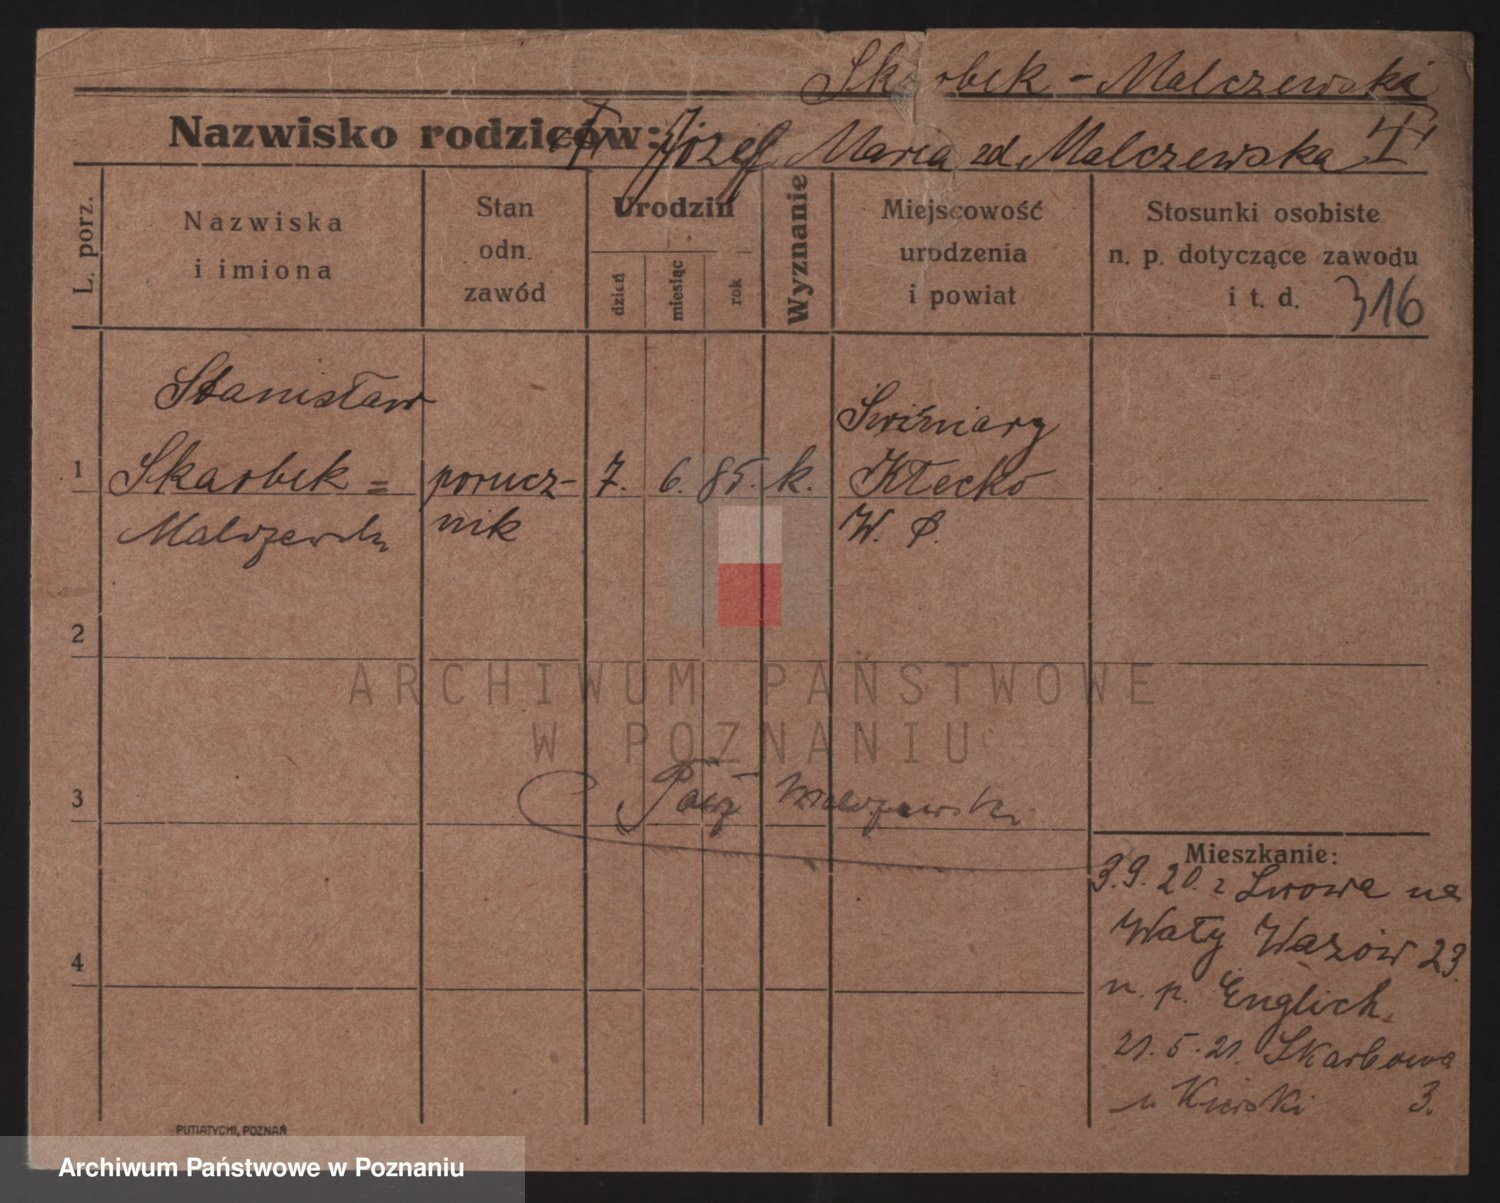 Skarbek - Malczewski
Nazwisko rodziców: † Józef, Maria zd. Malczewska †
L. porz.
Nazwiska
i imiona
Stan
odn.
zawód
Urodzin
dzień
miesiąc
rok
Wyznanie
Miejscowość
urodzenia
i powiat
Stosunki osobiste
n. p. dotyczące zawodu
i t. d.
316
1
Stanisław
Skarbek =
Malczewski
porucz-
nik
7. 6. 85. k.
Świniary
Kłecko
W. P.
2
ARCHIWUM PAŃSTWOWE
W POZNANIU
3
Malczewski
4
Mieszkanie:
3.9.20. z Lwowa na
Wały Wazów 23
n. p. Englich.
21.5.21. Skarbowa
u 3.
PUTIATYCKI, POZNAŃ
Archiwum Państwowe w Poznaniu